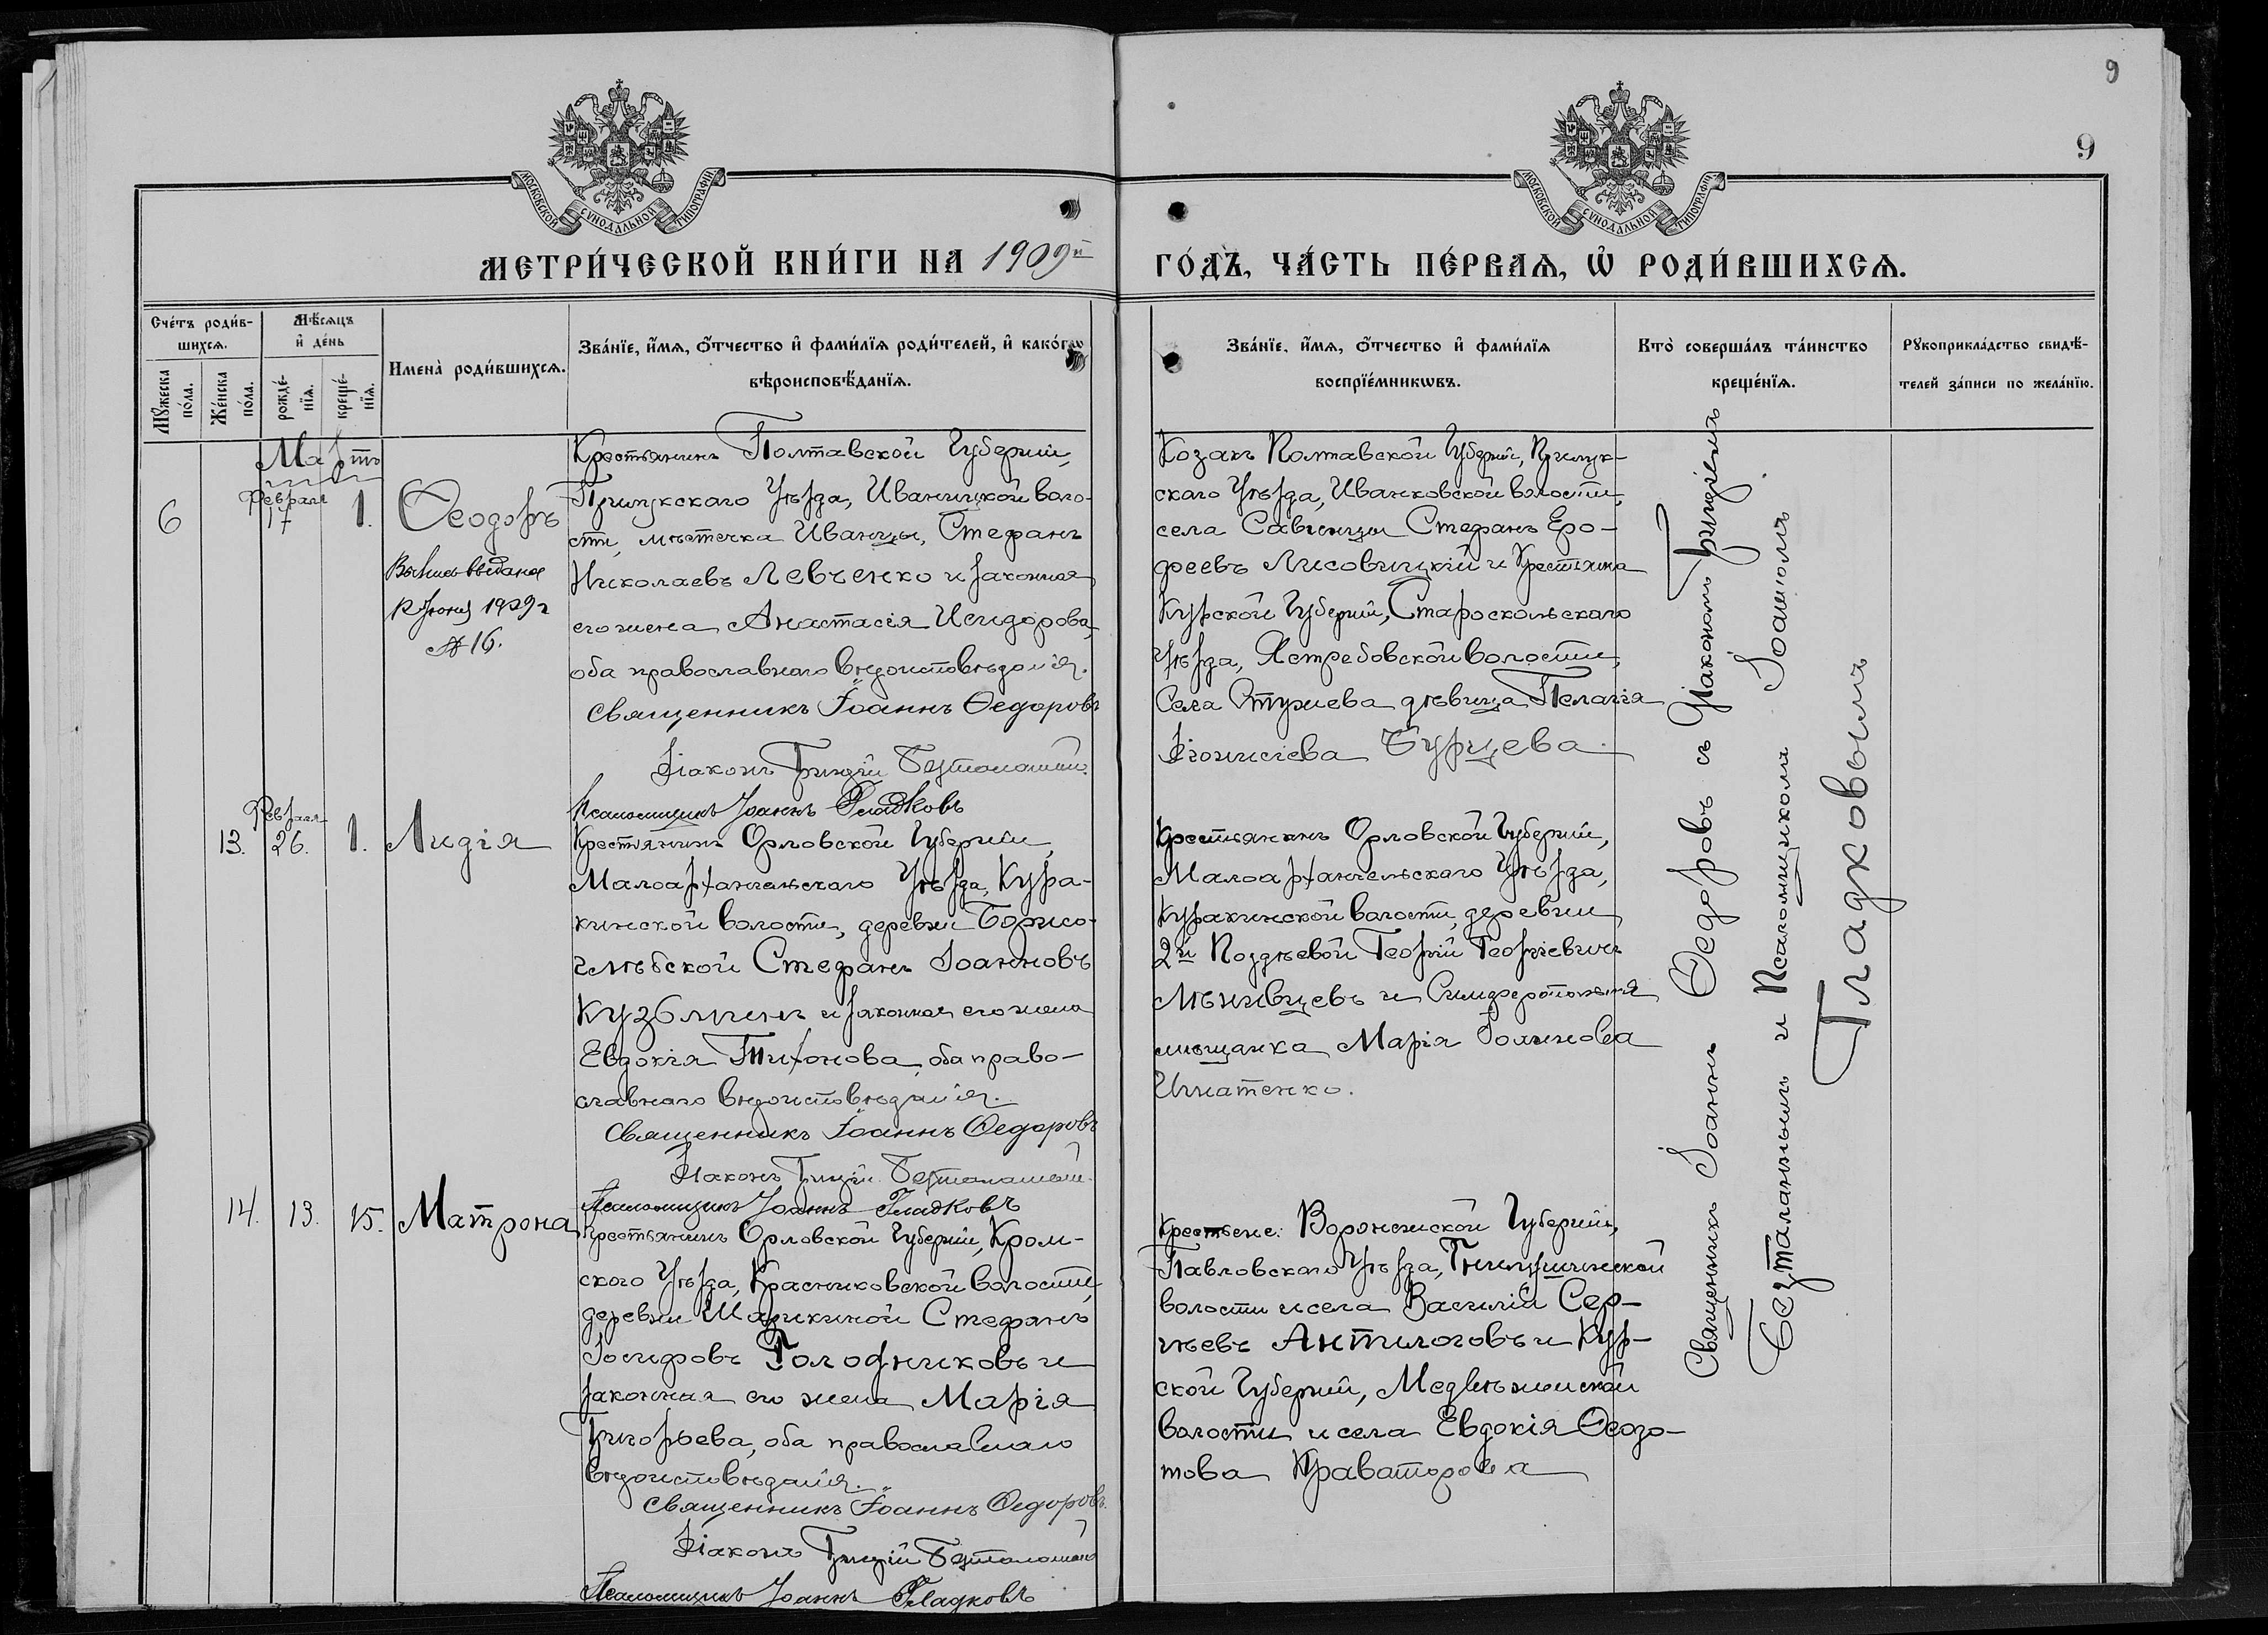 9
9
МОСКОВСКОЙ СѴНОДАЛЬНОЙ ТИПОГРАФІИ
МОСКОВСКОЙ СѴНОДАЛЬНОЙ ТИПОГРАФІИ
МЕТРИ́ЧЕСКОЙ КНИ́ГИ НА 1909й
ГО́ДЪ, ЧА́СТЬ ПЕ́РВАѦ, Ѡ҆ РОДИ́ВШИХСѦ.
Сче́тъ роди́в-
шихсѧ.
Мѣ́сѧцъ
и҆ де́нь
Мꙋ́жеска по́ла.
Же́нска по́ла.
рожде́-
нїѧ.
креще́-
нїѧ.
Имена̀ роди́вшихсѧ.
Зва́нїе, и҆́мѧ, ѻ҆́тчество и҆ фами́лїѧ роди́телей, и҆ како́гѡ
вѣроисповѣ́данїѧ.
Зва́нїе, и҆́мѧ, ѻ҆́тчество и҆ фами́лїѧ
воспрїе́мникѡвъ.
Кто̀ соверша́лъ та́инство
креще́нїѧ.
Рꙋкоприкла́дство свидѣ́-
телей за́писи по жела́нїю.
Мартъ
6
Февраля
17
1.
Ѳеодоръ
Выпись выдана
12 Іюня 1929 г
№ 16.
Крестьянинъ Полтавской Губерніи,
Прилукскаго Уѣзда, Иваницкой воло-
сти, мѣстечка Иваницы, Стефанъ
Николаевъ Левченко и законная
его жена Анастасія Исидорова,
оба православнаго вѣроисповѣданія.
Священникъ Іоаннъ Ѳедоровъ
Діаконъ Григорій Безталанный
Псаломщикъ Іоаннъ Гладковъ
Козакъ Полтавской Губерніи, Прилук-
скаго Уѣзда, Иванковской волости,
села Савинцы Стефанъ Еро-
феевъ Лисовицкій и Крестьянка
Курской Губерніи, Староскольскаго
Уѣзда, Ястребовской волости,
Села девица Пелагія
Діонисіева Бурцева.
13.
Феврал
26.
1.
Лидія
Крестьянинъ Орловской Губерніи,
Малоархангельскаго Уѣзда, Кура-
кинской волости, деревни Борисо-
глѣбской Стефанъ Іоанновъ
Кузьминъ и законная его жена
Евдокія Тихонова, оба право-
славнаго вѣроисповѣданія.
Священникъ Іоаннъ Ѳедоровъ
Діаконъ Григорій Безталанный
Псаломщикъ Іоаннъ Гладковъ
Крестьянинъ Орловской Губерніи,
Малоархангельскаго Уѣзда,
Куракинской волости, деревни
2й Позднѣевой Георгій Георгіевичъ
и Симферопольская
мѣщанка Марія Іоаннова
Игнатенко.
14.
13.
15.
Матрона
Крестьянинъ Орловской Губерніи, Кром-
ского Уѣзда, Красниковской волости,
деревни Шарикиной Стефанъ
Іосифовъ Голофниковъ и
законная его жена Марія
Григорьева, оба православнаго
вѣроисповѣданія.
Священникъ Іоаннъ Ѳедоровъ.
Діаконъ Григорій Безталанный
Псаломщикъ Іоаннъ Гладковъ
Крестьяне: Воронежской Губерніи,
Павловскаго Уѣзда,
волости и села Василій Сер-
гѣевъ Антилоговъ и Кур-
ской Губерніи, Медвѣженской
волости и села Евдокія Ѳедо-
това
Священникъ Іоаннъ Ѳедоровъ съ Діакономъ Григоріемъ
Безталаннымъ и Псаломщикомъ Іоанномъ
Гладковымъ